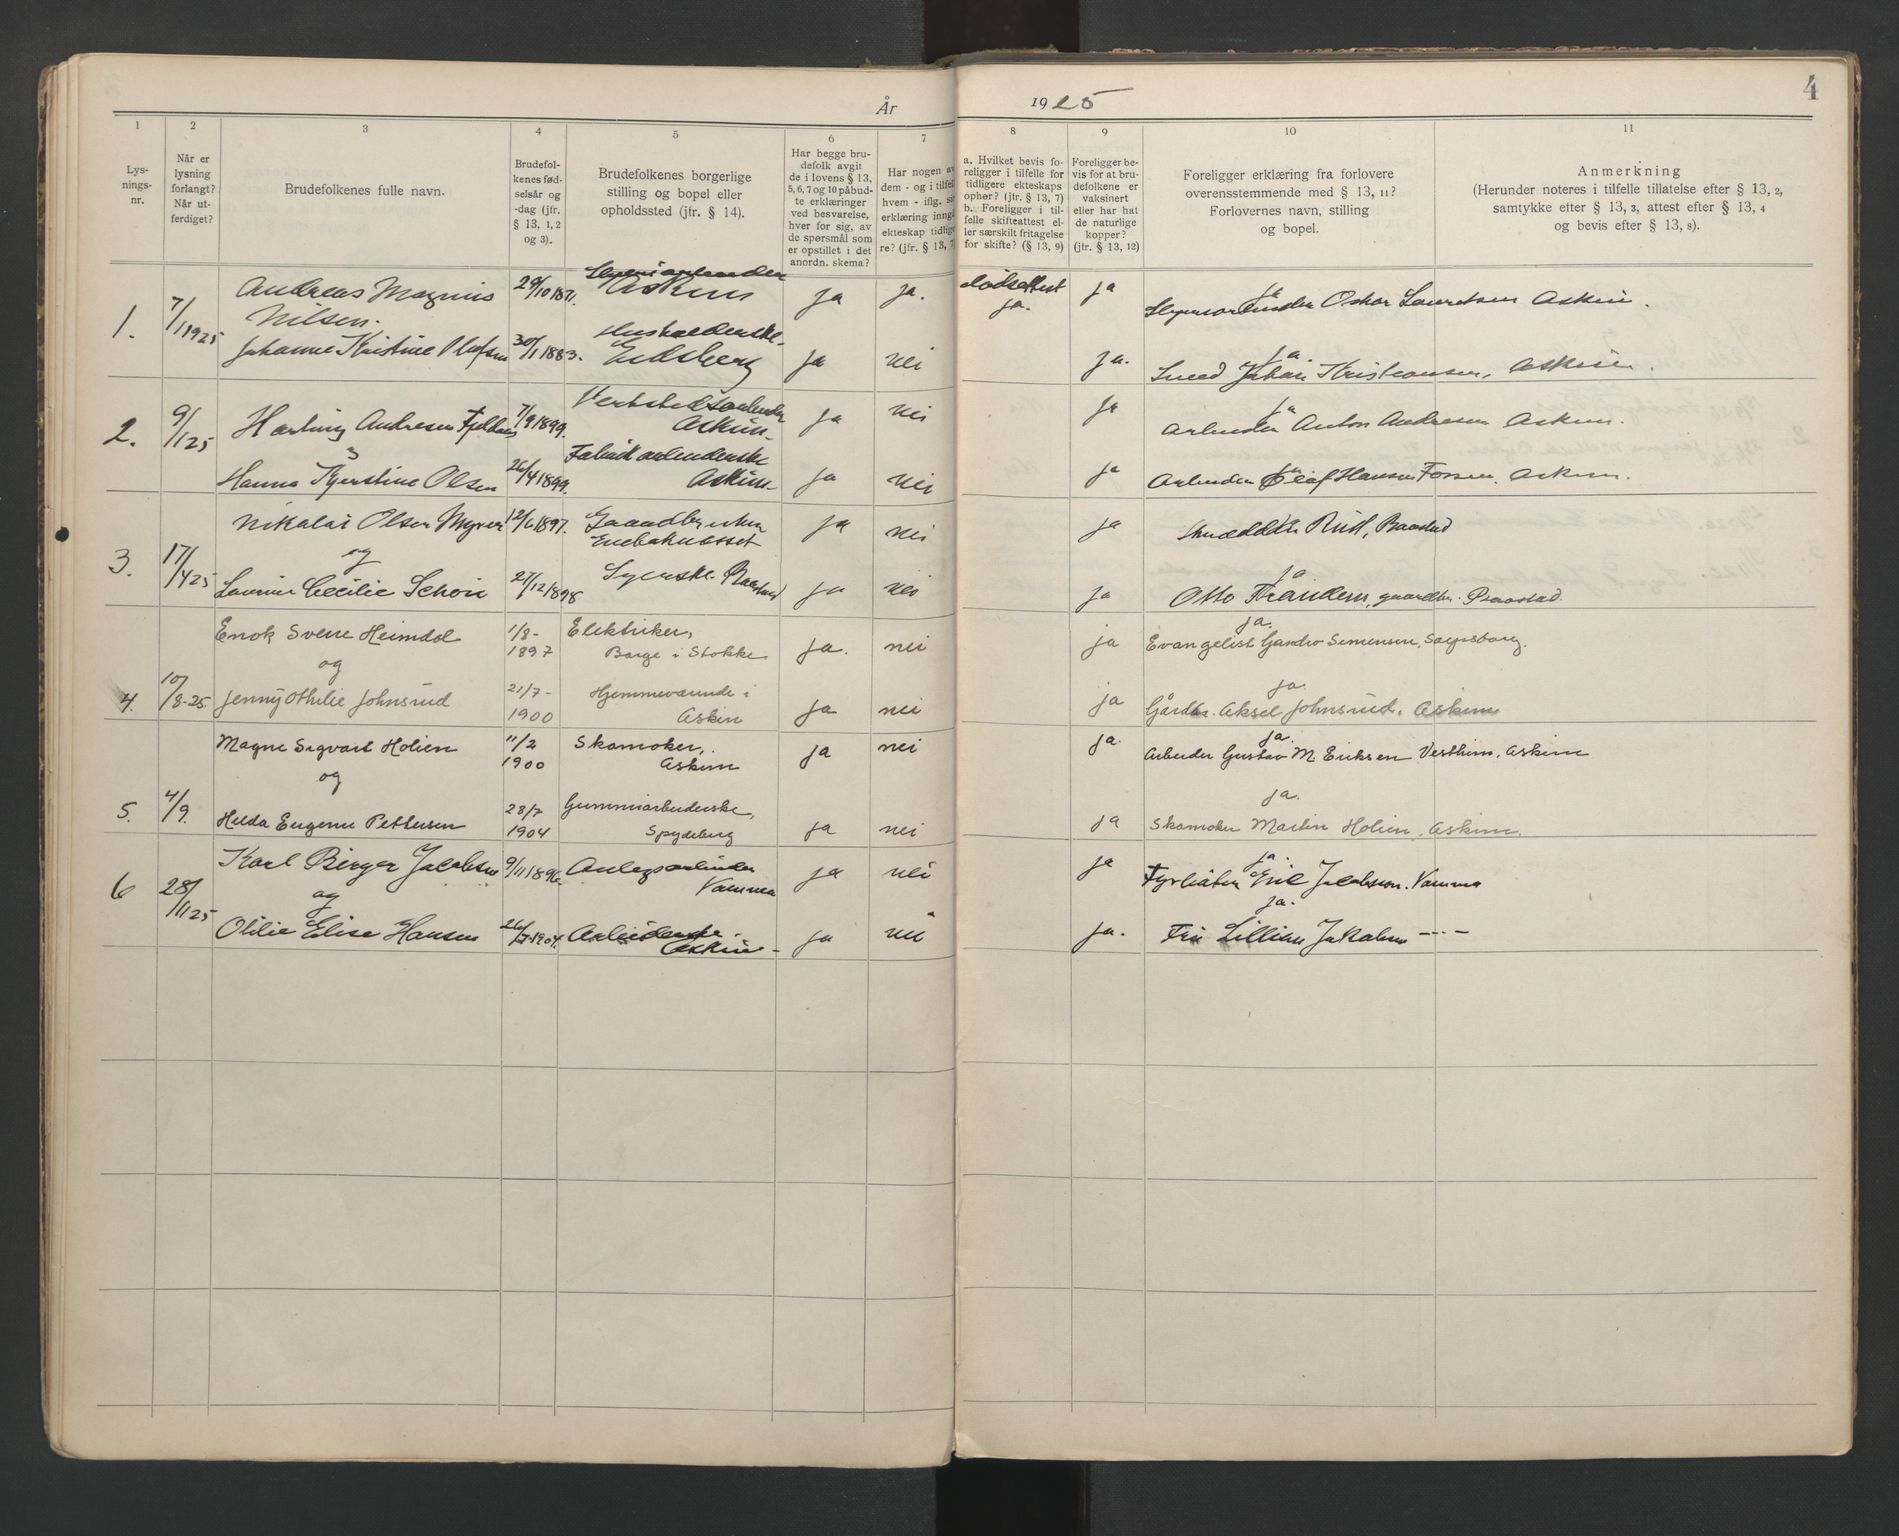 År 1925
4
1 2 3 4 5 6 7 8 9 10 11
Lys-
nings-
nr.
Når er
lysning
forlangt?
Når ut-
ferdiget?
Brudefolkenes fulle navn.
Brudefol-
kenes fød-
selsår og
-dag (jfr.
§ 13, 1, 2
og 3).
Brudefolkenes borgerlige
stilling og bopel eller
opholdssted (jfr. § 14).
Har begge bru-
defolk avgit
de i lovens § 13,
5, 6, 7 og 10 påbud-
te erklæringer
ved besvarelse,
hver for sig, av
de spørsmål som
er opstillet i det
anordn. skema?
Har nogen av
dem - og i tilfel
hvem - iflg. si
erklæring inngå
ekteskap tidlige
re? (jfr. § 13, 7
a. Hvilket bevis fo-
religger i tilfelle for
tidligere ekteskaps
ophør? (jfr. § 13, 7)
b. Foreligger i til-
felle skifteattest el-
ler særskilt fritagelse
for skifte? (§ 13, 9)
Foreligger be-
vis for at bru-
defolkene er
vaksinert
eller har hat
de naturlige
kopper?
(jfr. § 13, 12)
Foreligger erklæring fra forlovere
overensstemmende med § 13, 11?
Forlovernes navn, stilling
og bopel.
Anmerkning
(Herunder noteres i tilfelle tillatelse efter § 13, 2,
samtykke efter § 13, 3, attest efter § 13, 4
og bevis efter § 13, 8).
1. 7/1 1925
Andreas Magnus
Nilsen.
29/10 1871.
Askim
ja ja.
dødsattest
ja.
ja
ja
Oskar Lauritsen Askim.
Johanne Kristine Olafsen
30/1 1883.
Husholderske.
Eidsberg
ja nei ja.
ja
Smed Johan Kristiansen, Askim.
2. 9/1 25
Hartvig Andresen
7/9 1899.
Verkstedsarbeider
Askim
ja nei ja
ja
Arbeider Anton Andresen Askim.
Hanna Kjerstine Olsen
26/4 1899.
Fabrikarbeiderske
Askim
ja nei ja
ja
Arbeider Olaf Hansen Fossen, Askim.
3. 17/4 25
Nikolai Olsen Myrer
12/6 1897.
Gaardbruker
Enebaknesset
ja nei ja
Baastad
og
Cecilie
27/12 1898
Syerske. Baastad
ja nei ja
ja
Otto gaardbr. Baastad.
4. 10/8-25.
Enok Sverre Heimdal
1/8-
1897
Elektriker,
Borge i Stokke
ja. nei ja
ja.
Evangelist Semensen, Sarpsborg.
og
Jenny Othilie Johnsrud
21/7-
1900
Hjemmeværende i
Askim
ja nei ja
ja.
Gårdbr. Aksel Johnsrud, Askim
5. 4/9.
Magne Sigvart Holien
11/2
1900
Skomaker,
Askim
ja nei ja.
ja.
Arbeider Gustav M. Eriksen Vestheim, Askim
og
Hilda Eugenie Pettersen
28/7
1904
Gummiarbeiderske,
Spydeberg
ja nei ja
ja.
Skomaker Martin Holien, Askim.
6 28/11 25
Karl Birger Jacobsen
9/11 1896.
Anlegsarbeider
Vamma
ja nei ja
ja.
Fyrbøter Jacobsen. Vamma
og
Otilie Elise Hansen
26/7 1904.
Arbeiderske.
Askim -
ja nei ja.
ja.
Fru Lillian Jakobsen -"-